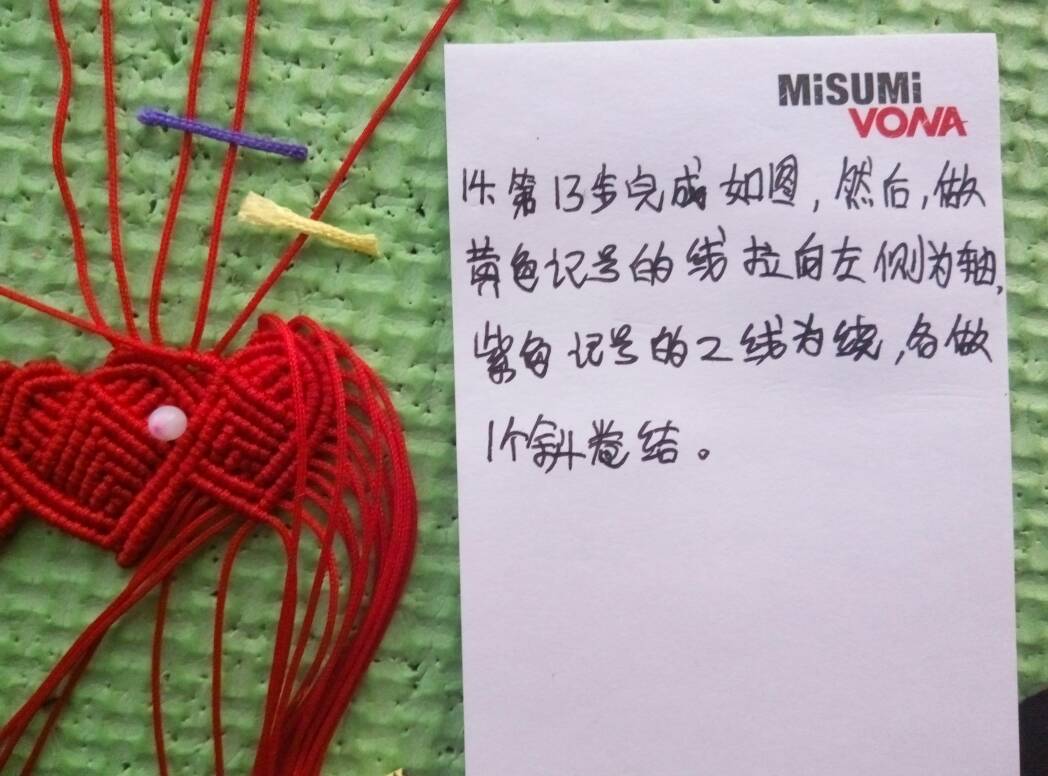 MiSUMi
VONA
14、第13步完成如图,然后,做
黄色记号的线拉向左侧为轴,
紫色记号的2线为绕,各做
1个斜卷结。